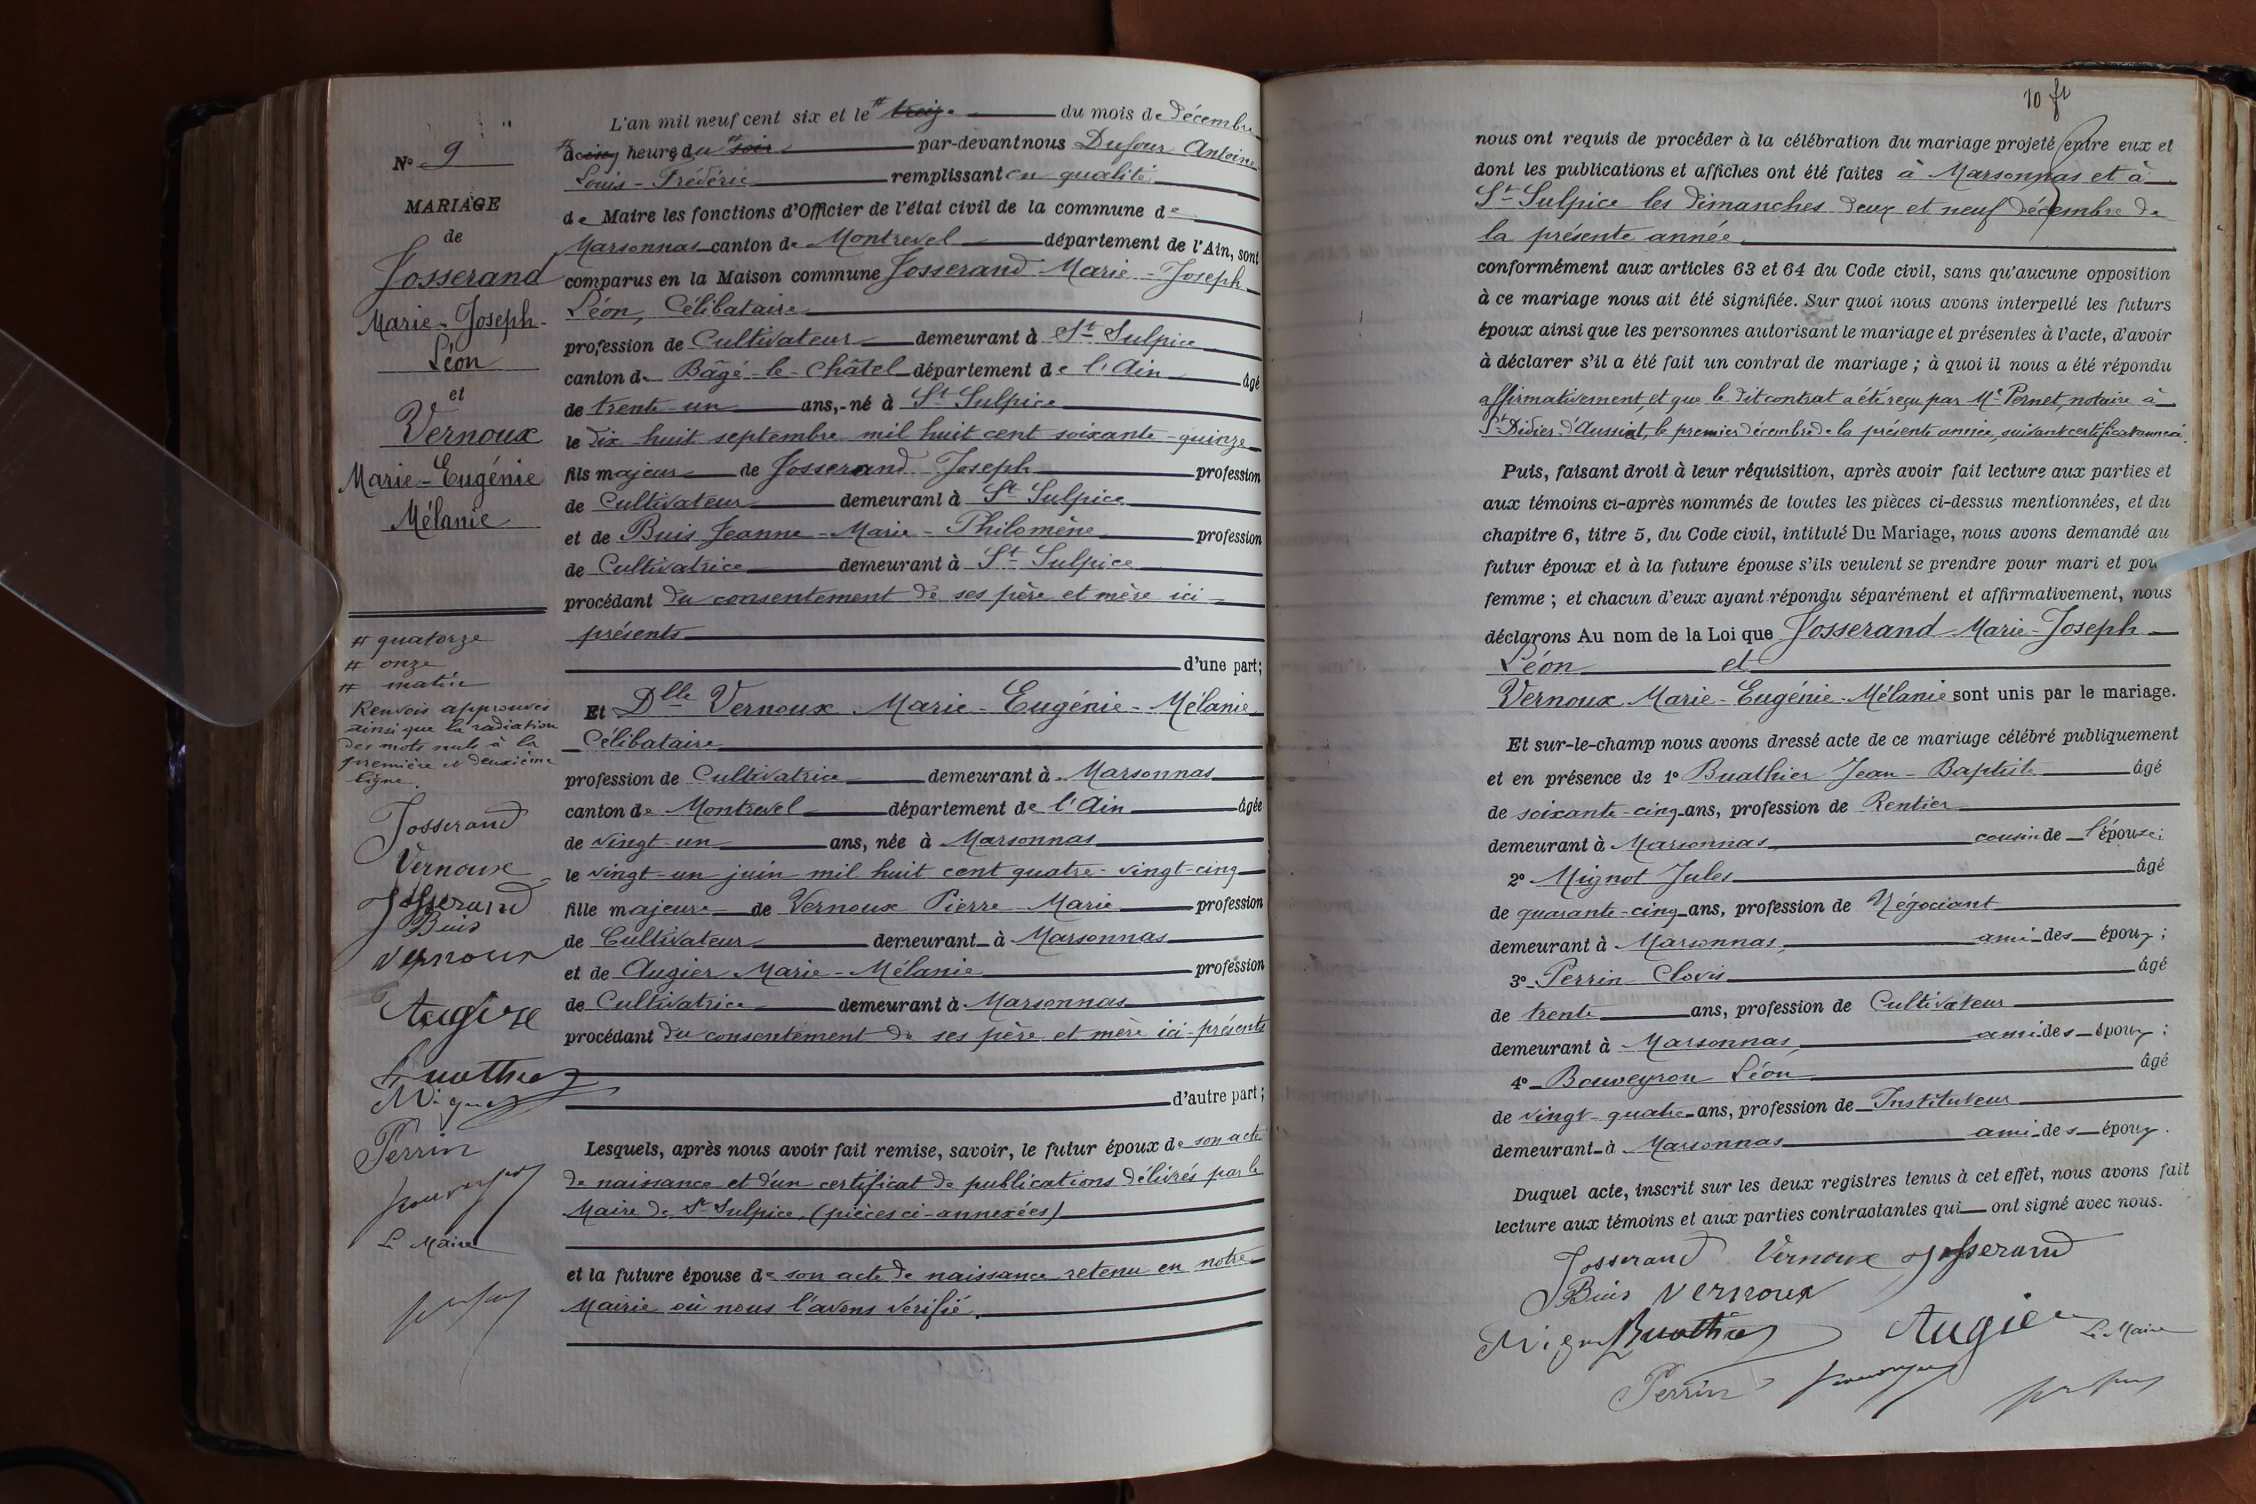 L'an mil neuf cent six et le # treize du mois de Décembre
à # cinq heures du # soir par-devant nous Dufour Antoine
Louis-Frédéric remplissant en qualité
de Maire les fonctions d'Officier de l'état civil de la commune de
Marsonnas canton de Montrevel département de l'Ain, sont
comparus en la Maison commune Josserand Marie-Joseph
Léon, Célibataire
profession de Cultivateur demeurant à St Sulpice
canton de Bâgé-le-Châtel département de l'Ain âgé
de trente-un ans, né à St Sulpice
le dix huit septembre mil huit cent soixante-quinze
fils majeur de Josserand Joseph profession
de Cultivateur demeurant à St Sulpice
et de Buis Jeanne-Marie-Philomène profession
de Cultivatrice demeurant à St Sulpice
procédant du consentement de ses père et mère ici-
présents
d'une part;
Et Dlle Vernoux Marie-Eugénie-Mélanie
Célibataire
profession de Cultivatrice demeurant à Marsonnas
canton de Montrevel département de l'Ain âgée
de vingt-un ans, née à Marsonnas
le vingt-un juin mil huit cent quatre-vingt-cinq
fille majeure de Vernoux Pierre Marie profession
de Cultivateur demeurant à Marsonnas
et de Augier Marie-Mélanie profession
de Cultivatrice demeurant à Marsonnas
procédant du consentement de ses père et mère ici-présents
d'autre part;
Lesquels, après nous avoir fait remise, savoir, le futur époux de son acte
de naissance et d'un certificat de publications délivrés par le
Maire de St Sulpice, (pièces ci-annexées)
et la future épouse de son acte de naissance retenu en notre
Mairie où nous l'avons vérifié.
N° 9
MARIAGE
de
Josserand
Marie-Joseph-
Léon
et
Vernoux
Marie-Eugénie
Mélanie
# quatorze
# onze
# matin
Renvois approuvés
ainsi que la radiation
des mots nuls à la
première et deuxième
ligne.
Josserand
Vernoux
Josserand
Buis
Vernoux
Augier
Buathier
Mignot
Perrin
Le Maire
10 ft
nous ont requis de procéder à la célébration du mariage projeté entre eux et
dont les publications et affiches ont été faites à Marsonnas et à
St Sulpice les dimanches deux et neuf décembre de
la présente année
conformément aux articles 63 et 64 du Code civil, sans qu'aucune opposition
à ce mariage nous ait été signifiée. Sur quoi nous avons interpellé les futurs
époux ainsi que les personnes autorisant le mariage et présentes à l'acte, d'avoir
à déclarer s'il a été fait un contrat de mariage; à quoi il nous a été répondu
affirmativement, et que le dit contrat a été reçu par Me Pernet, notaire à
St Didier d'Aussiat, le premier décembre de la présente année, suivant certificat annexé.
Puis, faisant droit à leur réquisition, après avoir fait lecture aux parties et
aux témoins ci-après nommés de toutes les pièces ci-dessus mentionnées, et du
chapitre 6, titre 5, du Code civil, intitulé Du Mariage, nous avons demandé au
futur époux et à la future épouse s'ils veulent se prendre pour mari et pou
femme; et chacun d'eux ayant répondu séparément et affirmativement, nous
déclarons Au nom de la Loi que Josserand Marie-Joseph
Léon et
Vernoux Marie-Eugénie-Mélanie sont unis par le mariage.
Et sur-le-champ nous avons dressé acte de ce mariage célébré publiquement
et en présence de 1° Buathier Jean-Baptiste âgé
de soixante-cinq ans, profession de Rentier
demeurant à Marsonnas cousin de l'épouse;
2° Mignot Jules âgé
de quarante-cinq ans, profession de Négociant
demeurant à Marsonnas, ami des époux;
3° Perrin Clovis âgé
de trente ans, profession de Cultivateur
demeurant à Marsonnas, ami des époux;
4° Bouveyron Léon âgé
de vingt-quatre ans, profession de Instituteur
demeurant à Marsonnas ami des époux.
Duquel acte, inscrit sur les deux registres tenus à cet effet, nous avons fait
lecture aux témoins et aux parties contractantes qui ont signé avec nous.
Josserand Vernoux Josserand
Buis Vernoux
Mignot Buathier Augier Le Maire
Perrin